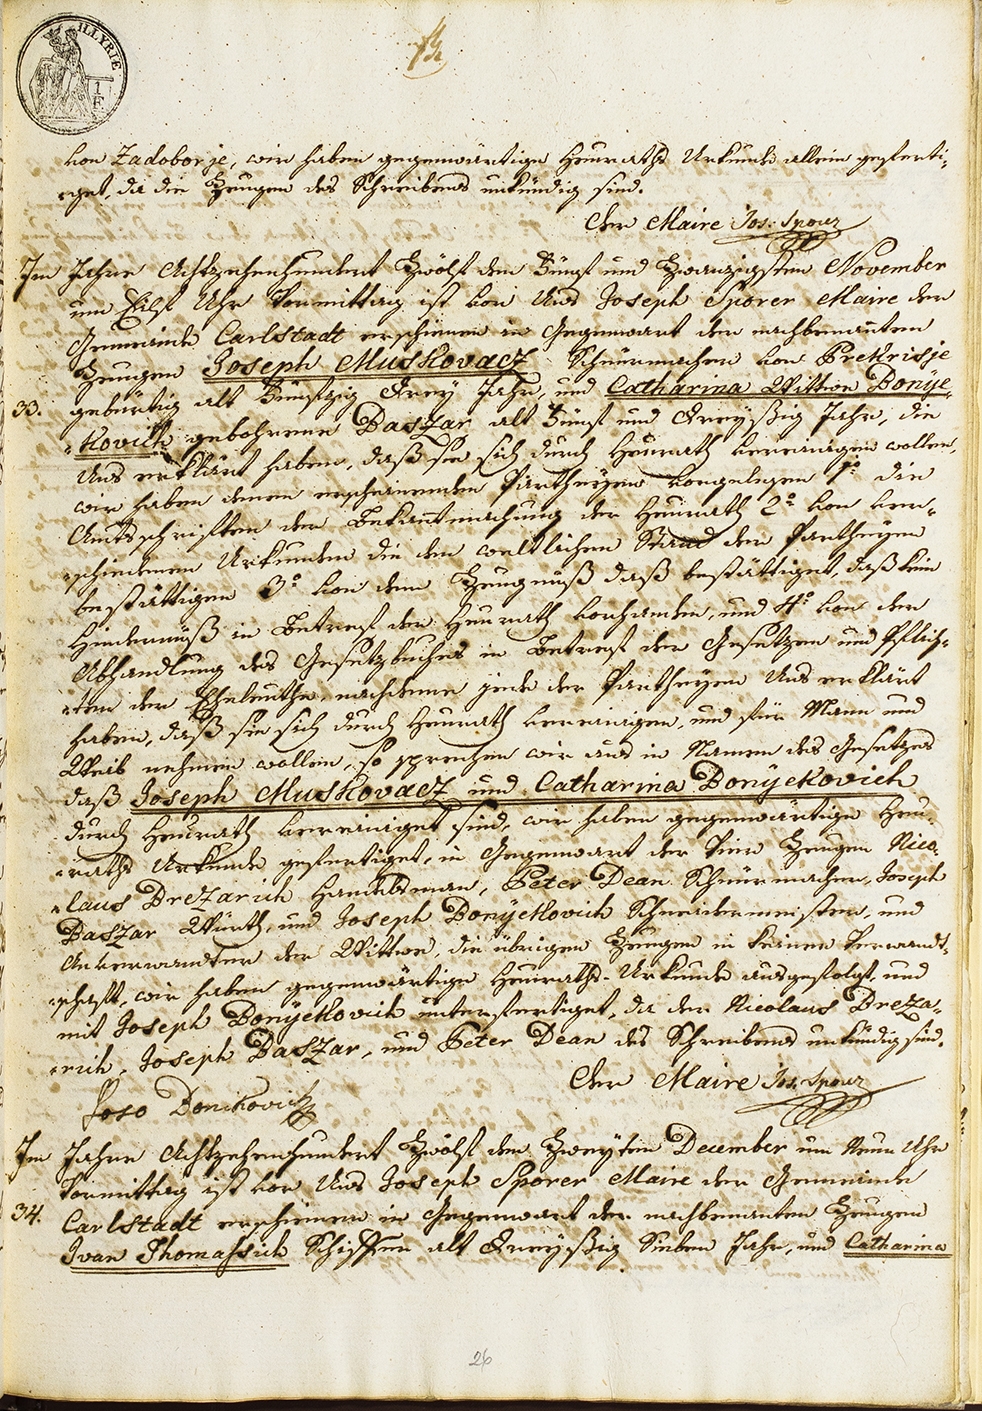 ILLYRIE
1
F
von Zadoborje, wir haben gegenwärtige Heuraths Urkunde allein geferti-
-get, da die Zeugen des Schreibens unkündig sind.
Der Maire Jos: Sporer
Im Jahre Achtzehenhundert Zwölf den Fünf und Zwanzigsten November
um Eilf Uhr Vormittag ist vor Uns Joseph Sporer Maire der
Gemeinde Carlstadt erschienen in Gegenwart der nachbenanten
Zeugen Joseph Muskovacz Schnürmacher von Prekrisje
33. gebürtig alt Fünfzig Drey Jahr, und Catharina Wittwe Bonÿe-
-kovich gebohrene Baszar alt Fünf und Dreyßig Jahr, die
Uns erklärt haben, daß sie sich durch Heurath vereinigen wollen,
wir haben denen erscheinenden Partheyen vorgelesen 1º die
Amtsschriften der Bekantmachung der Heurath 2º von ver-
-schiedenen Urkunden die den weltlichen Stand der Partheyen
bestättigen 3º von dem Zeugnuß daß bestättiget, daß kein
Hindernuß in Betref der Heurath vorhanden, und 4º von der
Abhandlung des Gesetzbuches in Betref der Gesetzen und Pflich-
-ten der Eheleuthe, nachdeme jede der Partheyen Uns erklärt
haben, daß sie sich durch Heurath vereinigen, und für Mann und
Weib nehmen wollen, so sprechen wir aus in Namen des Gesetzes
daß Joseph Muskovacz und Catharina Bonÿekovich
durch Heurath vereiniget sind, wir haben gegenwärtige Heu-
-raths Urkunde gefertiget, in Gegenwart der Vier Zeugen Nico-
-laus Drezarich Handelsman, Peter Dean Schnürmacher, Joseph
Baszar Würth, und Joseph Bonÿekovich Schneidermeister, und
Anverwandter der Wittwe, die übrigen Zeugen in keiner Verwandt-
-schaft, wir haben gegenwärtige Heuraths-Urkunde ausgefolgt, und
mit Joseph Bonÿekovich unterfertiget, da der Nicolaus Dreza-
-rich, Joseph Baszar, und Peter Dean des Schreibens unkündig sind.
Der Maire Jos: Sporer
Joso Donikovich
Im Jahre Achtzehenhundert Zwölf den Zweyten December um Neun Uhr
Vormittag ist vor Uns Joseph Sporer Maire der Gemeinde
34. Carlstadt erschienen in Gegenwart der nachbenanten Zeugen
Ivan Thomassich Schiffer alt Dreyßig Sieben Jahr, und Catharina
26